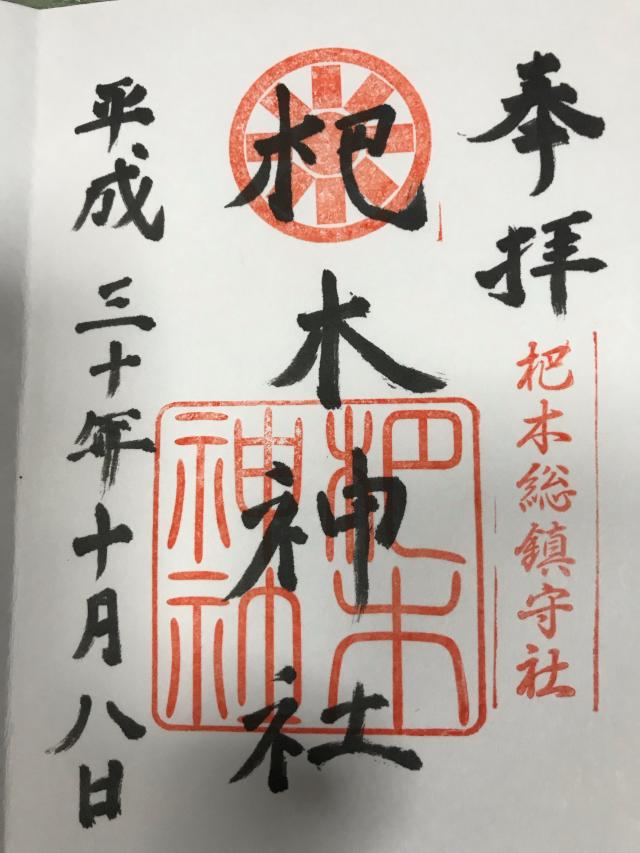 奉拝
杷木総鎮守社
杷木神社
杷木神社
平成三十年十月八日